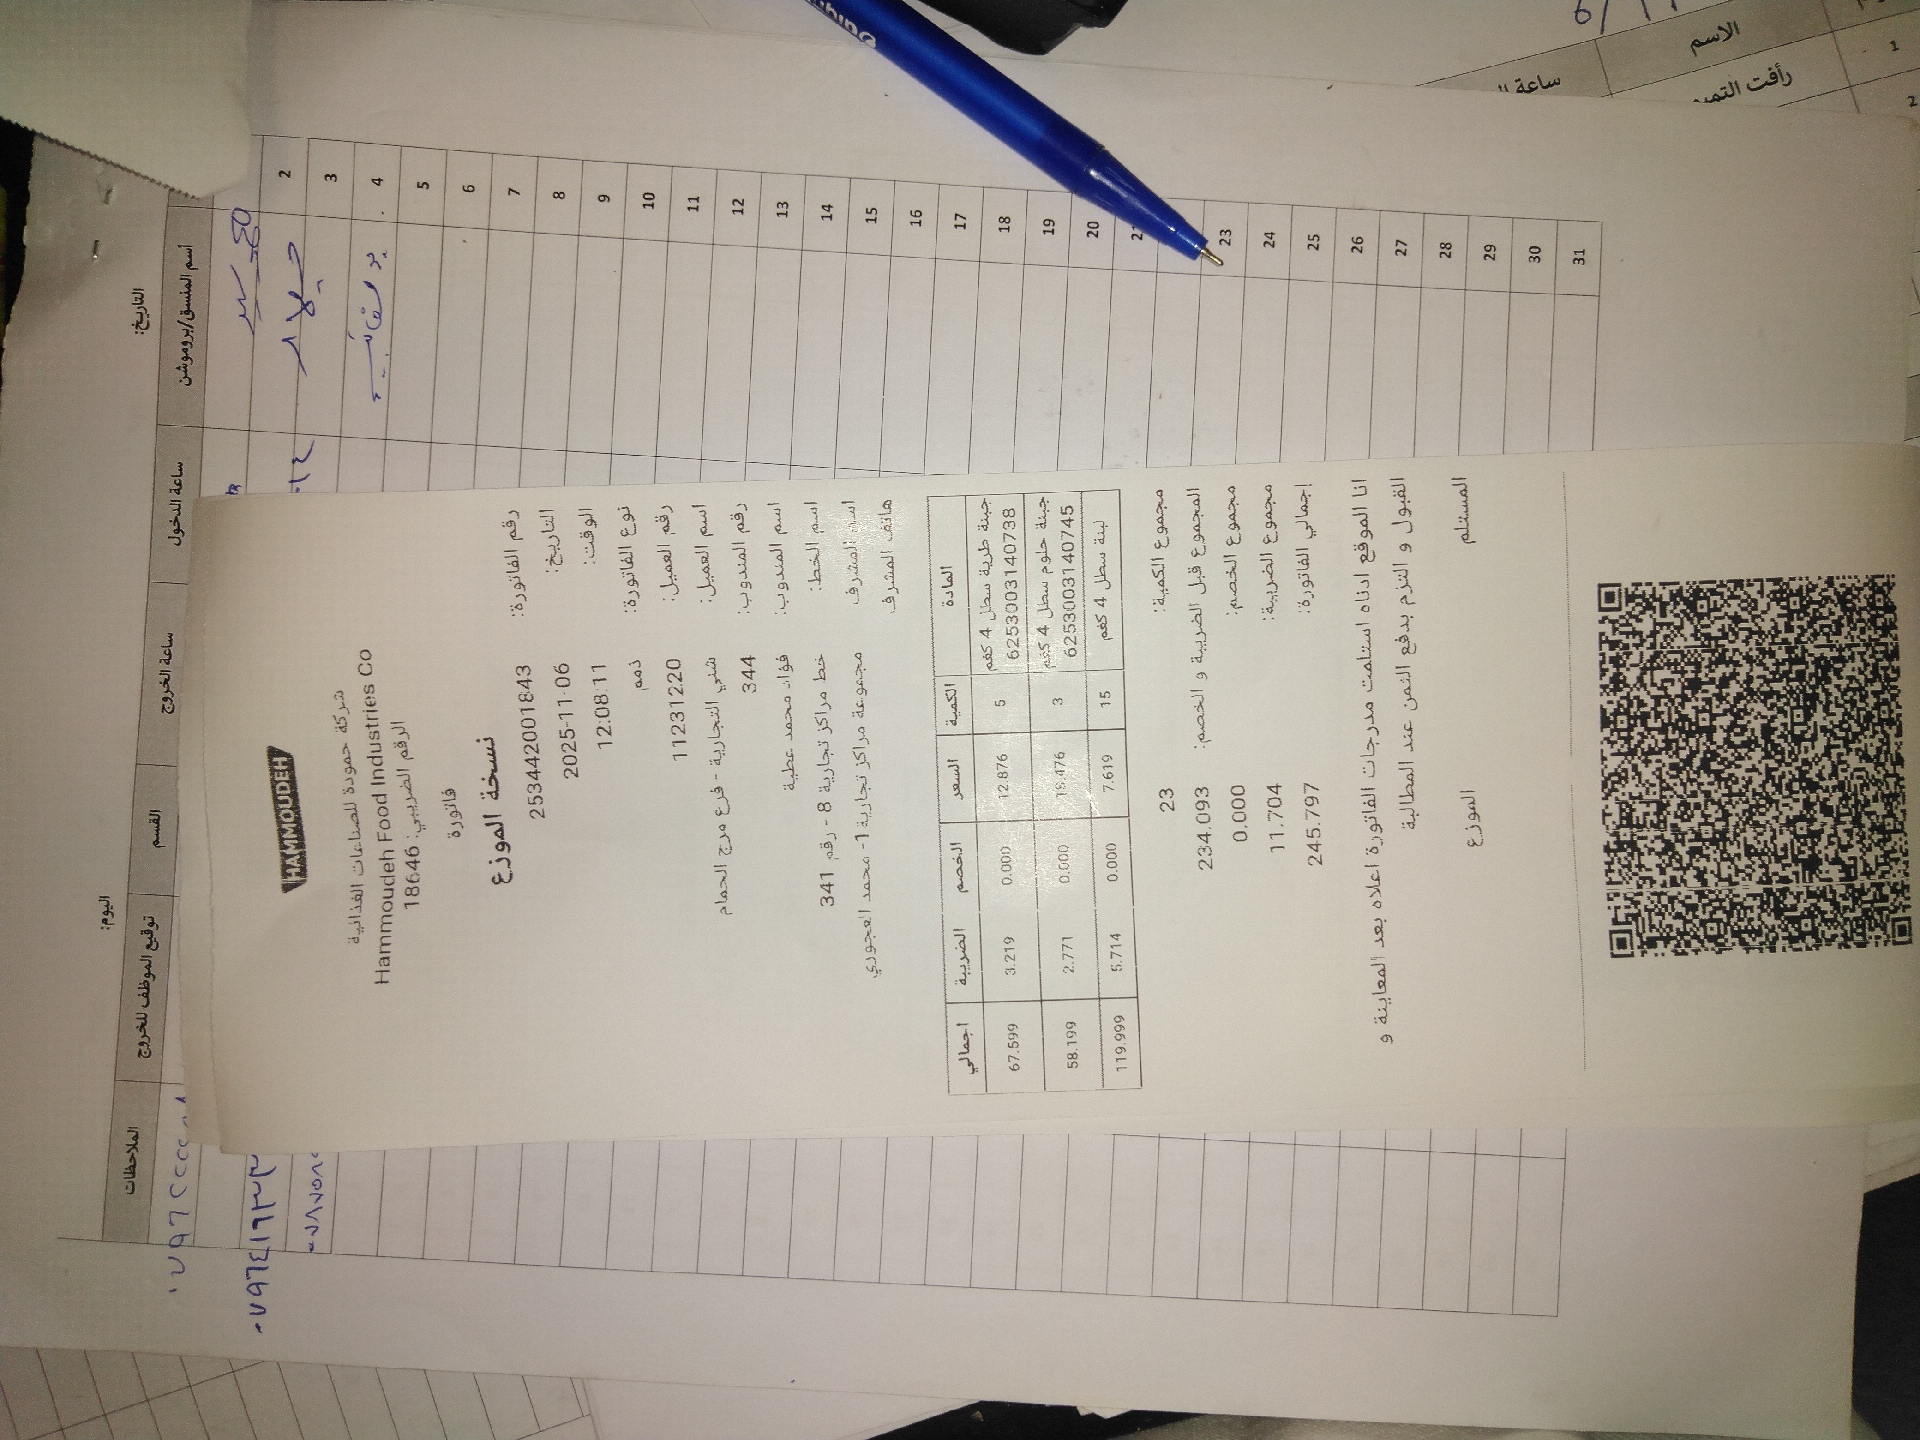 HAMMOUDEH
شركة حمودة للصناعات الغذائية
Hammoudeh Food Industries Co
الرقم الضريبي: 18646
فاتورة
نسخة الموزع
رقم الفاتورة: 253442001843
التاريخ: 2025-11-06
الوقت: 12:08:11
نوع الفاتورة: ذمم
رقم العميل: 11231220
اسم العميل: شني التجارية - فرع مرج الحمام
رقم المندوب: 344
اسم المندوب: فؤاد محمد عطية
اسم الخط: خط مراكز تجارية 8 - رقم 341
اسم المشرف مجموعة مراكز تجارية 1- محمد العجوري
هاتف المشرف
المادة الكمية السعر الخصم الضريبة اجمالي
جبنة طرية سطل 4 كغم 6253003140738 5 12.876 0.000 3.219 67.599
جبنة حلوم سطل 4 كغم 6253003140745 3 18.476 0.000 2.771 58.199
لبنة سطل 4 كغم 15 7.619 0.000 5.714 119.999
مجموع الكمية: 23
المجموع قبل الضريبة و الخصم: 234.093
مجموع الخصم: 0.000
مجموع الضريبة: 11.704
إجمالي الفاتورة: 245.797
انا الموقع ادناه استلمت مدرجات الفاتورة اعلاه بعد المعاينة و
القبول و التزم بدفع الثمن عند المطالبة
المستلم الموزع
التاريخ: اليوم:
اسم المنسق/بروموشن ساعة الدخول ساعة الخروج القسم توقيع الموظف للخروج الملاحظات
2
3
4
5
6
7
8
9
10
11
12
13
14
15
16
17
18
19
20
23
24
25
26
27
28
29
30
31
الاسم
ساعة
1 رأفت
2